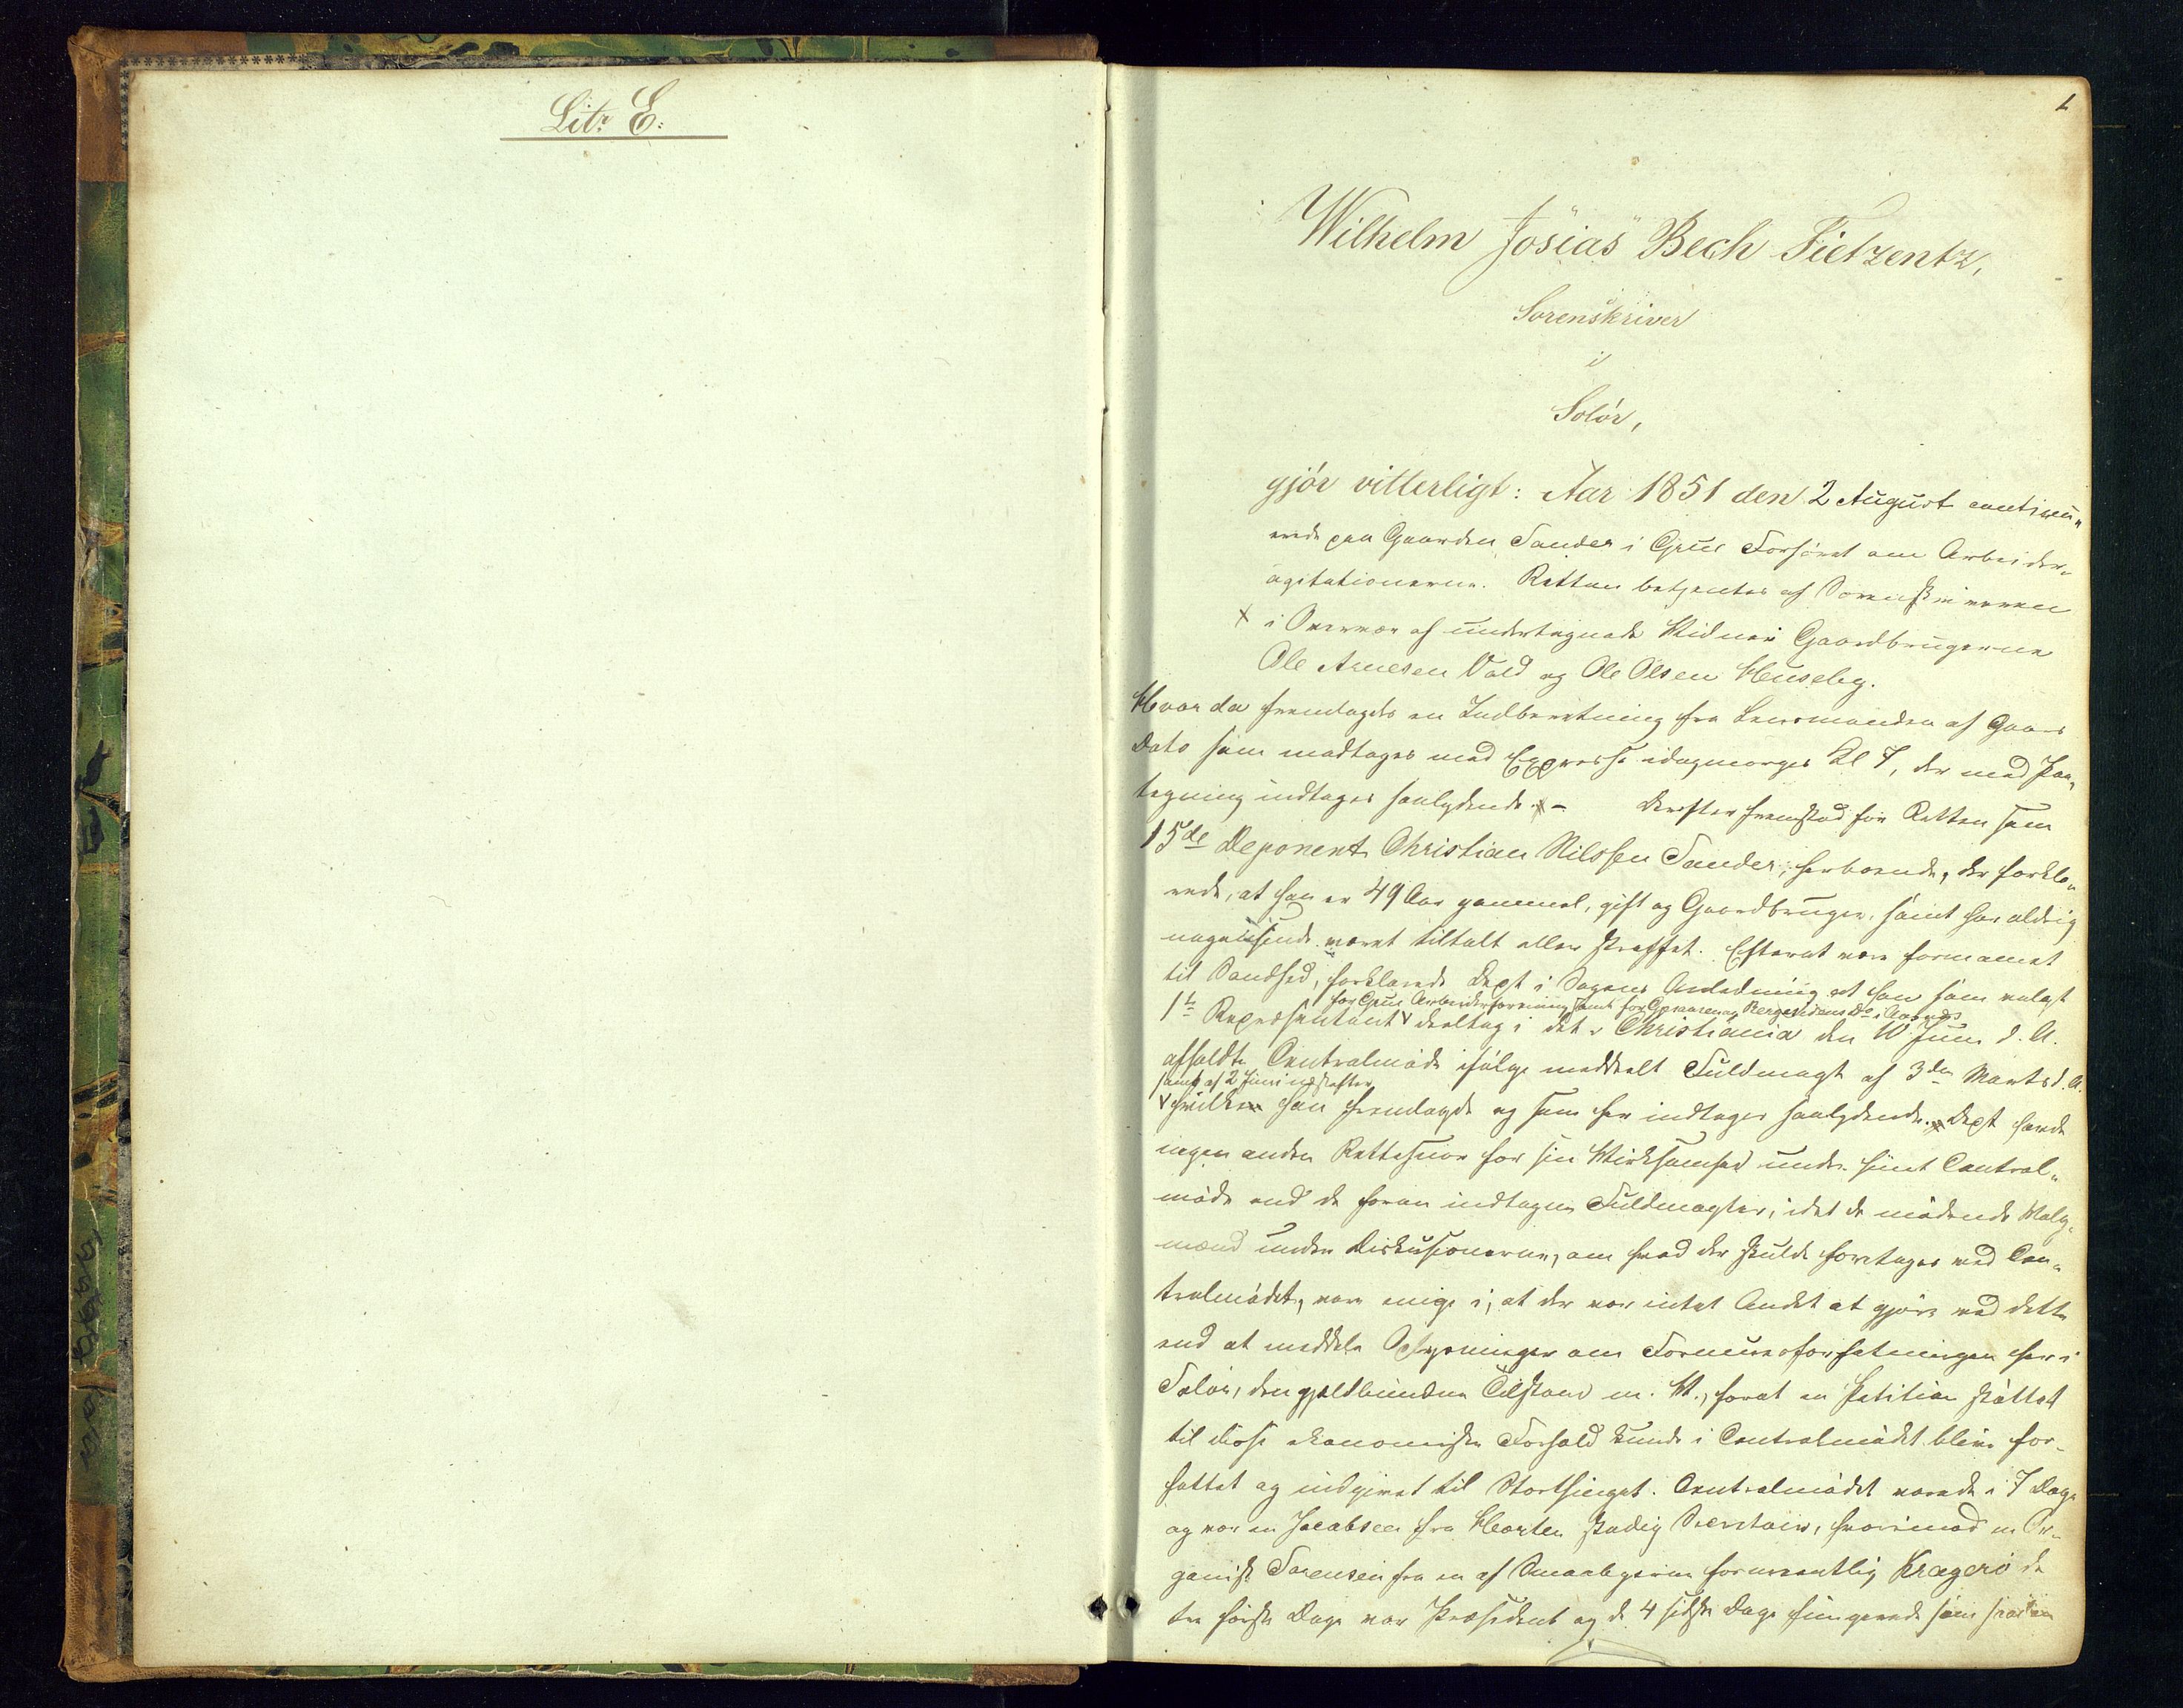 Litr E:
1
Wilhelm Josias Bech Fietzentz,
Sorenskriver
i
Solør,
gjør vitterligt: Aar 1851 den 2 August continu„
erede paa Gaarden Sander i Grue Forhøret om Arbeider„
agitationerne. Retten betjentes af Sorenskriveren
i Overvær af undertegnede Vidner Gaardbrugerne
Ole Arnesen Vold og Ole Olsen Huseby.
Hvor da fremlagdes en Indberetning fra Lensmanden af Gaars
Dato som modtoges med Expresse idagmorges Kl 7, der med Paa„
tegning indtages saalydende. – Derefter fremstod for Retten som
15de Deponent Christian Nilssen Sander, herboende, der forkla„
rede, at han er 49 Aar gammel, gift og Gaardbruger, samt har aldrig
nogensinde været tiltalt eller straffet. Efterat være formanet
til Sandhed, forklarede Dept i Sagens Anledning at han som valgt
for Grue Arbeiderforening samt for
1ste Repræsentant deeltog i det i Christiania den 10 Juni d. A.
afholdte Centralmøde ifølge meddeelt Fuldmagt af 3die Marts d. A.
samt af 2 Juni næstefter
hvilke han fremlagde og som her indtages saalydende. Dept havde
ingen anden Rettesnor for sin Virksomhed under hiint Central„
møde end de foran indtagne Fuldmagter, idet de mødende Valg„
mænd under Diskusionerne, om hvad der skulde foretages ved Cen„
tralmødet, vare enige i, at der var intet Andet at gjøre ved dette
end at meddele Oplysninger om Formuesforfatningen her i
Solør, den gjældbundne Tilstand m. V., forat en Petition støttet
til disse økonomiske Forhold kunde i Centralmødet blive for„
fattet og indgivet til Storthinget. Centralmødet varede i 7 Dage
og var en Jacobsen fra Horten stadig Secretair, hvorimod en Or„
ganist Sørensen fra en af Smaabyerne formeentlig Kragerø de
tre første Dage var Præsident og de 4 sidste Dage fungerede som saadan